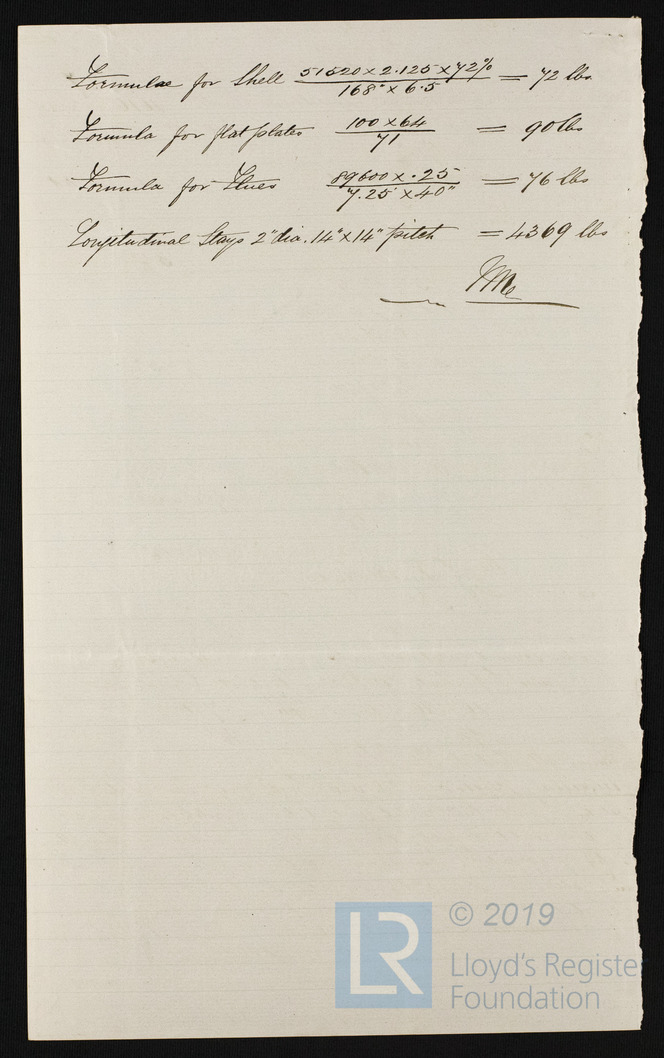 Formulae for Shell 51520 x 2.125 x 72% / 168" x 6.5 = 72 lbs
Formula for flat plates 100 x 64 / 71 = 90 lbs
Formula for Flues 89600 x .25 / 7.25 x 40" = 76 lbs
Longitudinal Stays 2" dia. 14" x 14" pitch = 4369 lbs
LR
© 2019
Lloyd's Register
Foundation